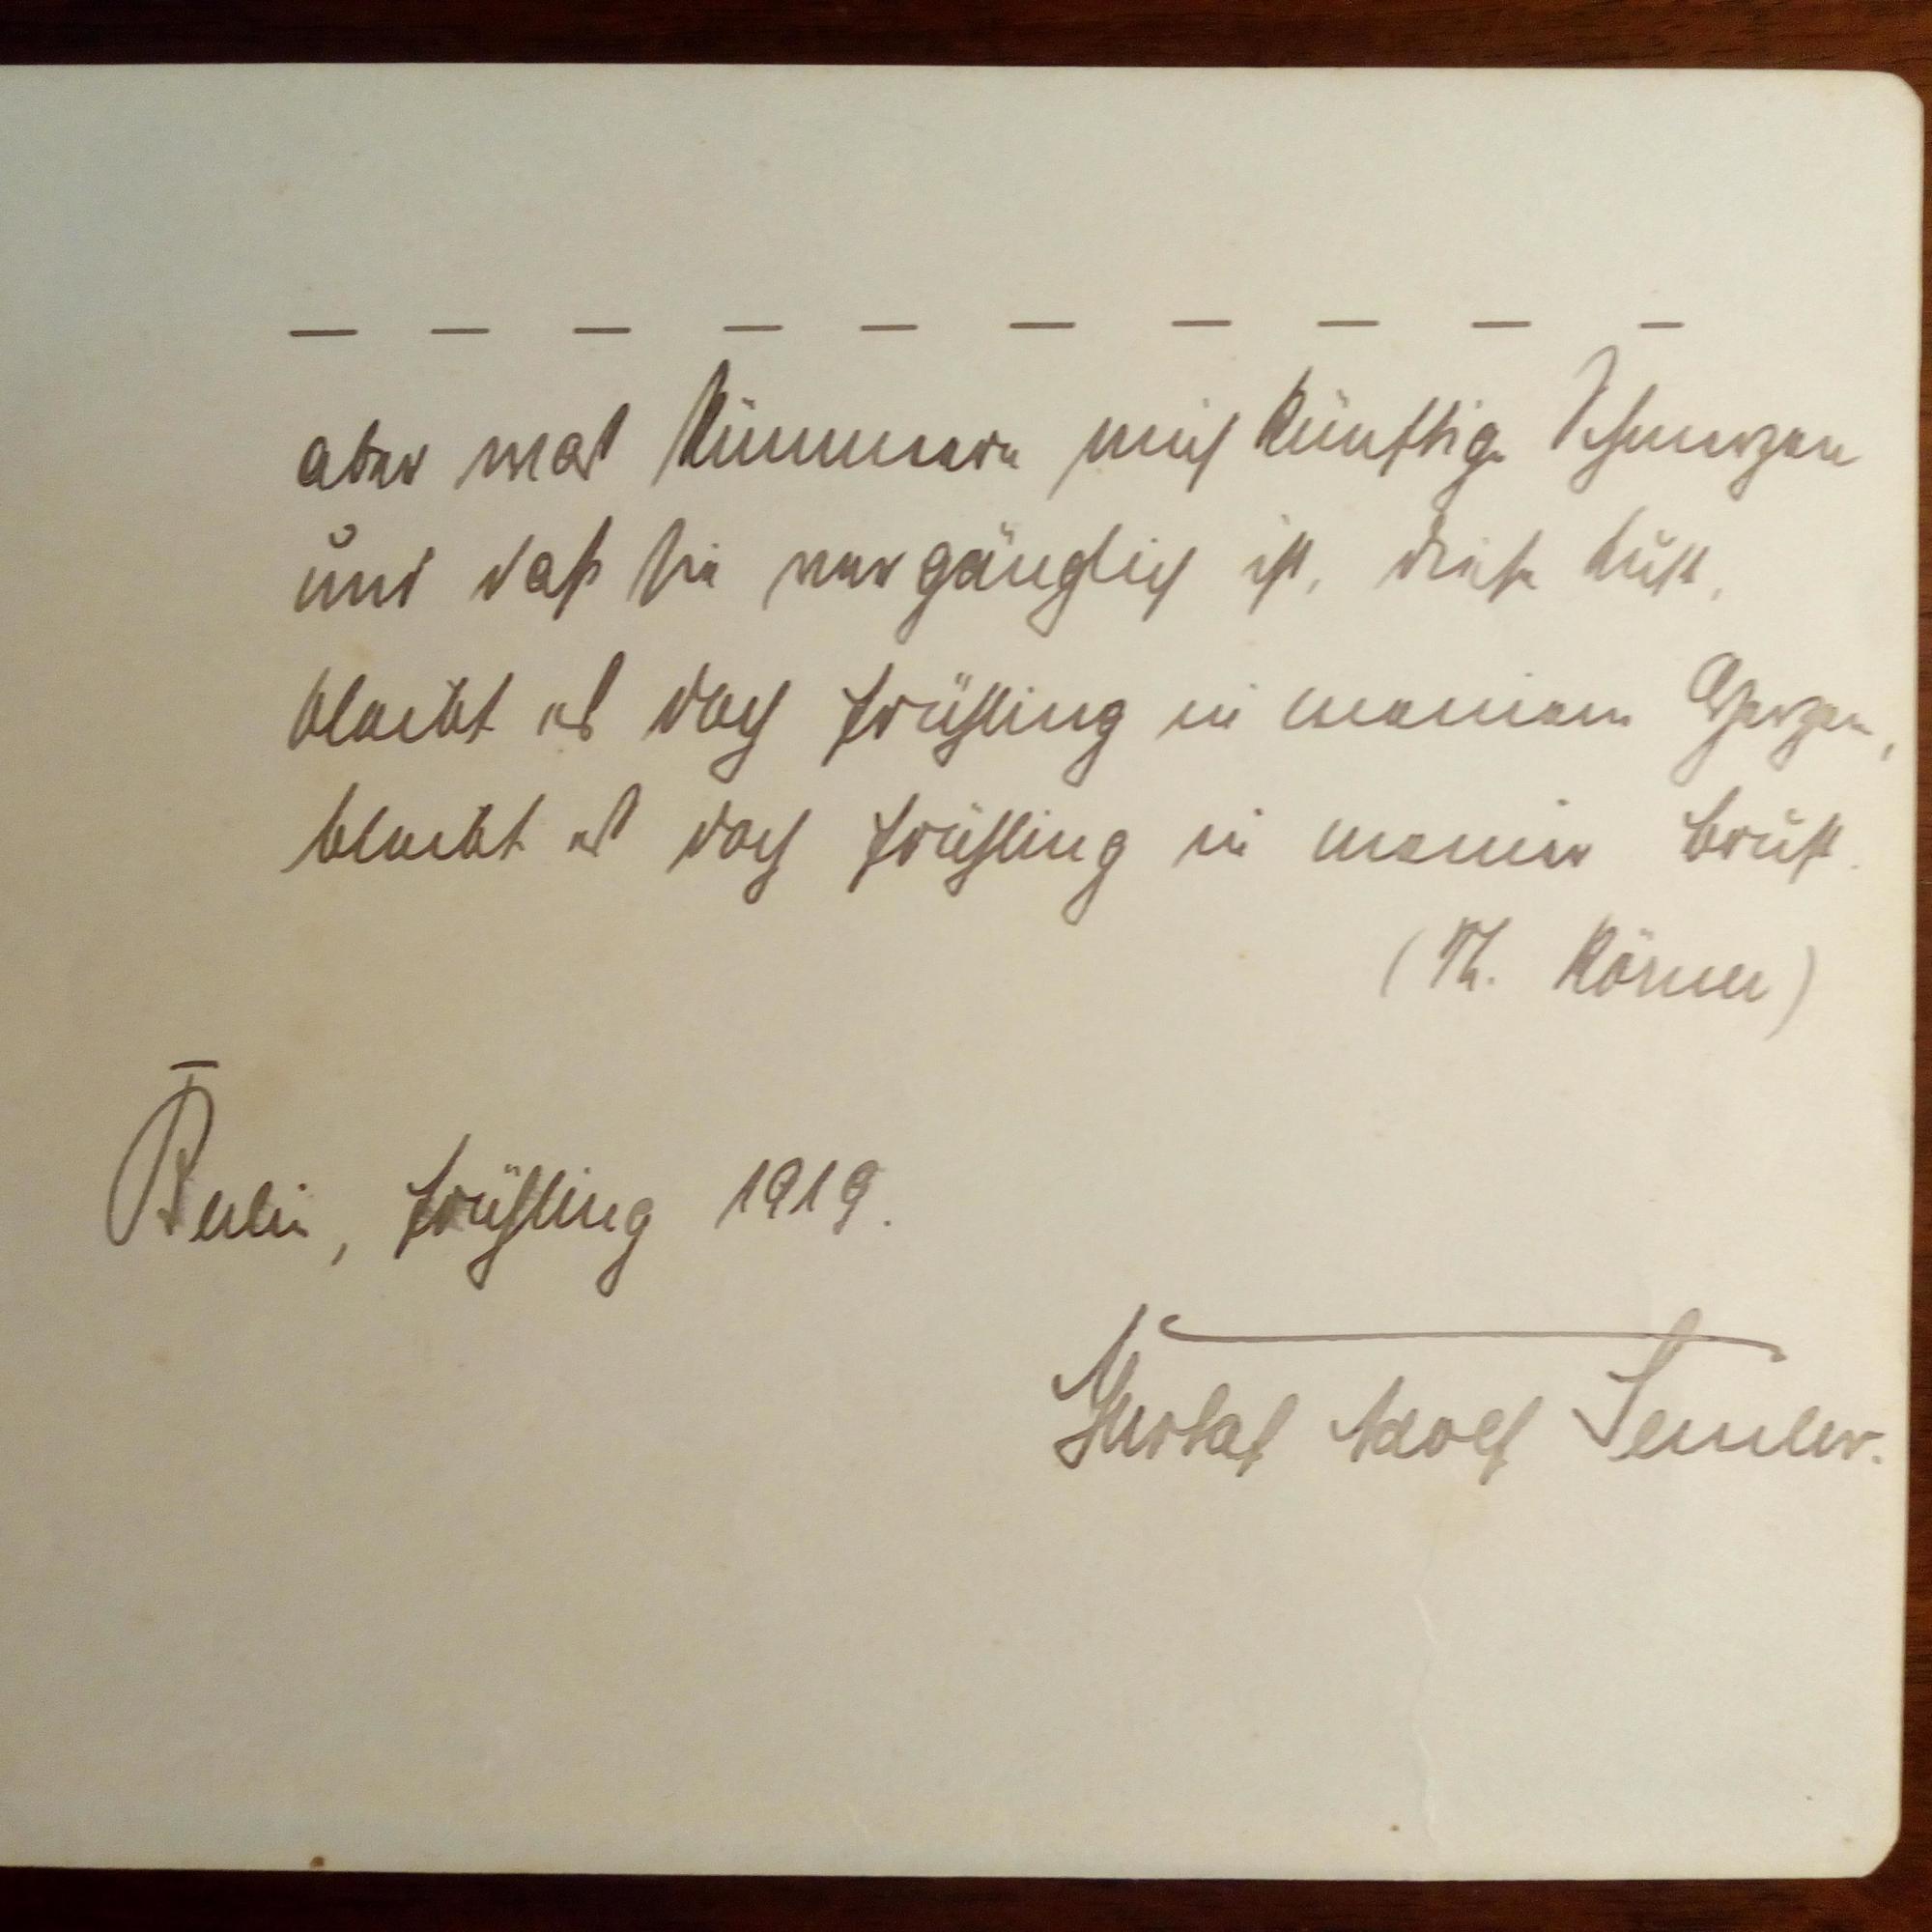 — — — — — — — — — —
aber was kümmern mich künftige Schmerzen
und daß sie vergänglich ist, diese Lust,
bleibt es doch Frühling in meinem Herzen,
bleibt es doch Frühling in meiner Brust.
(Th. Körner)
Berlin, Frühling 1919.
Gustaf Adolf Semler.